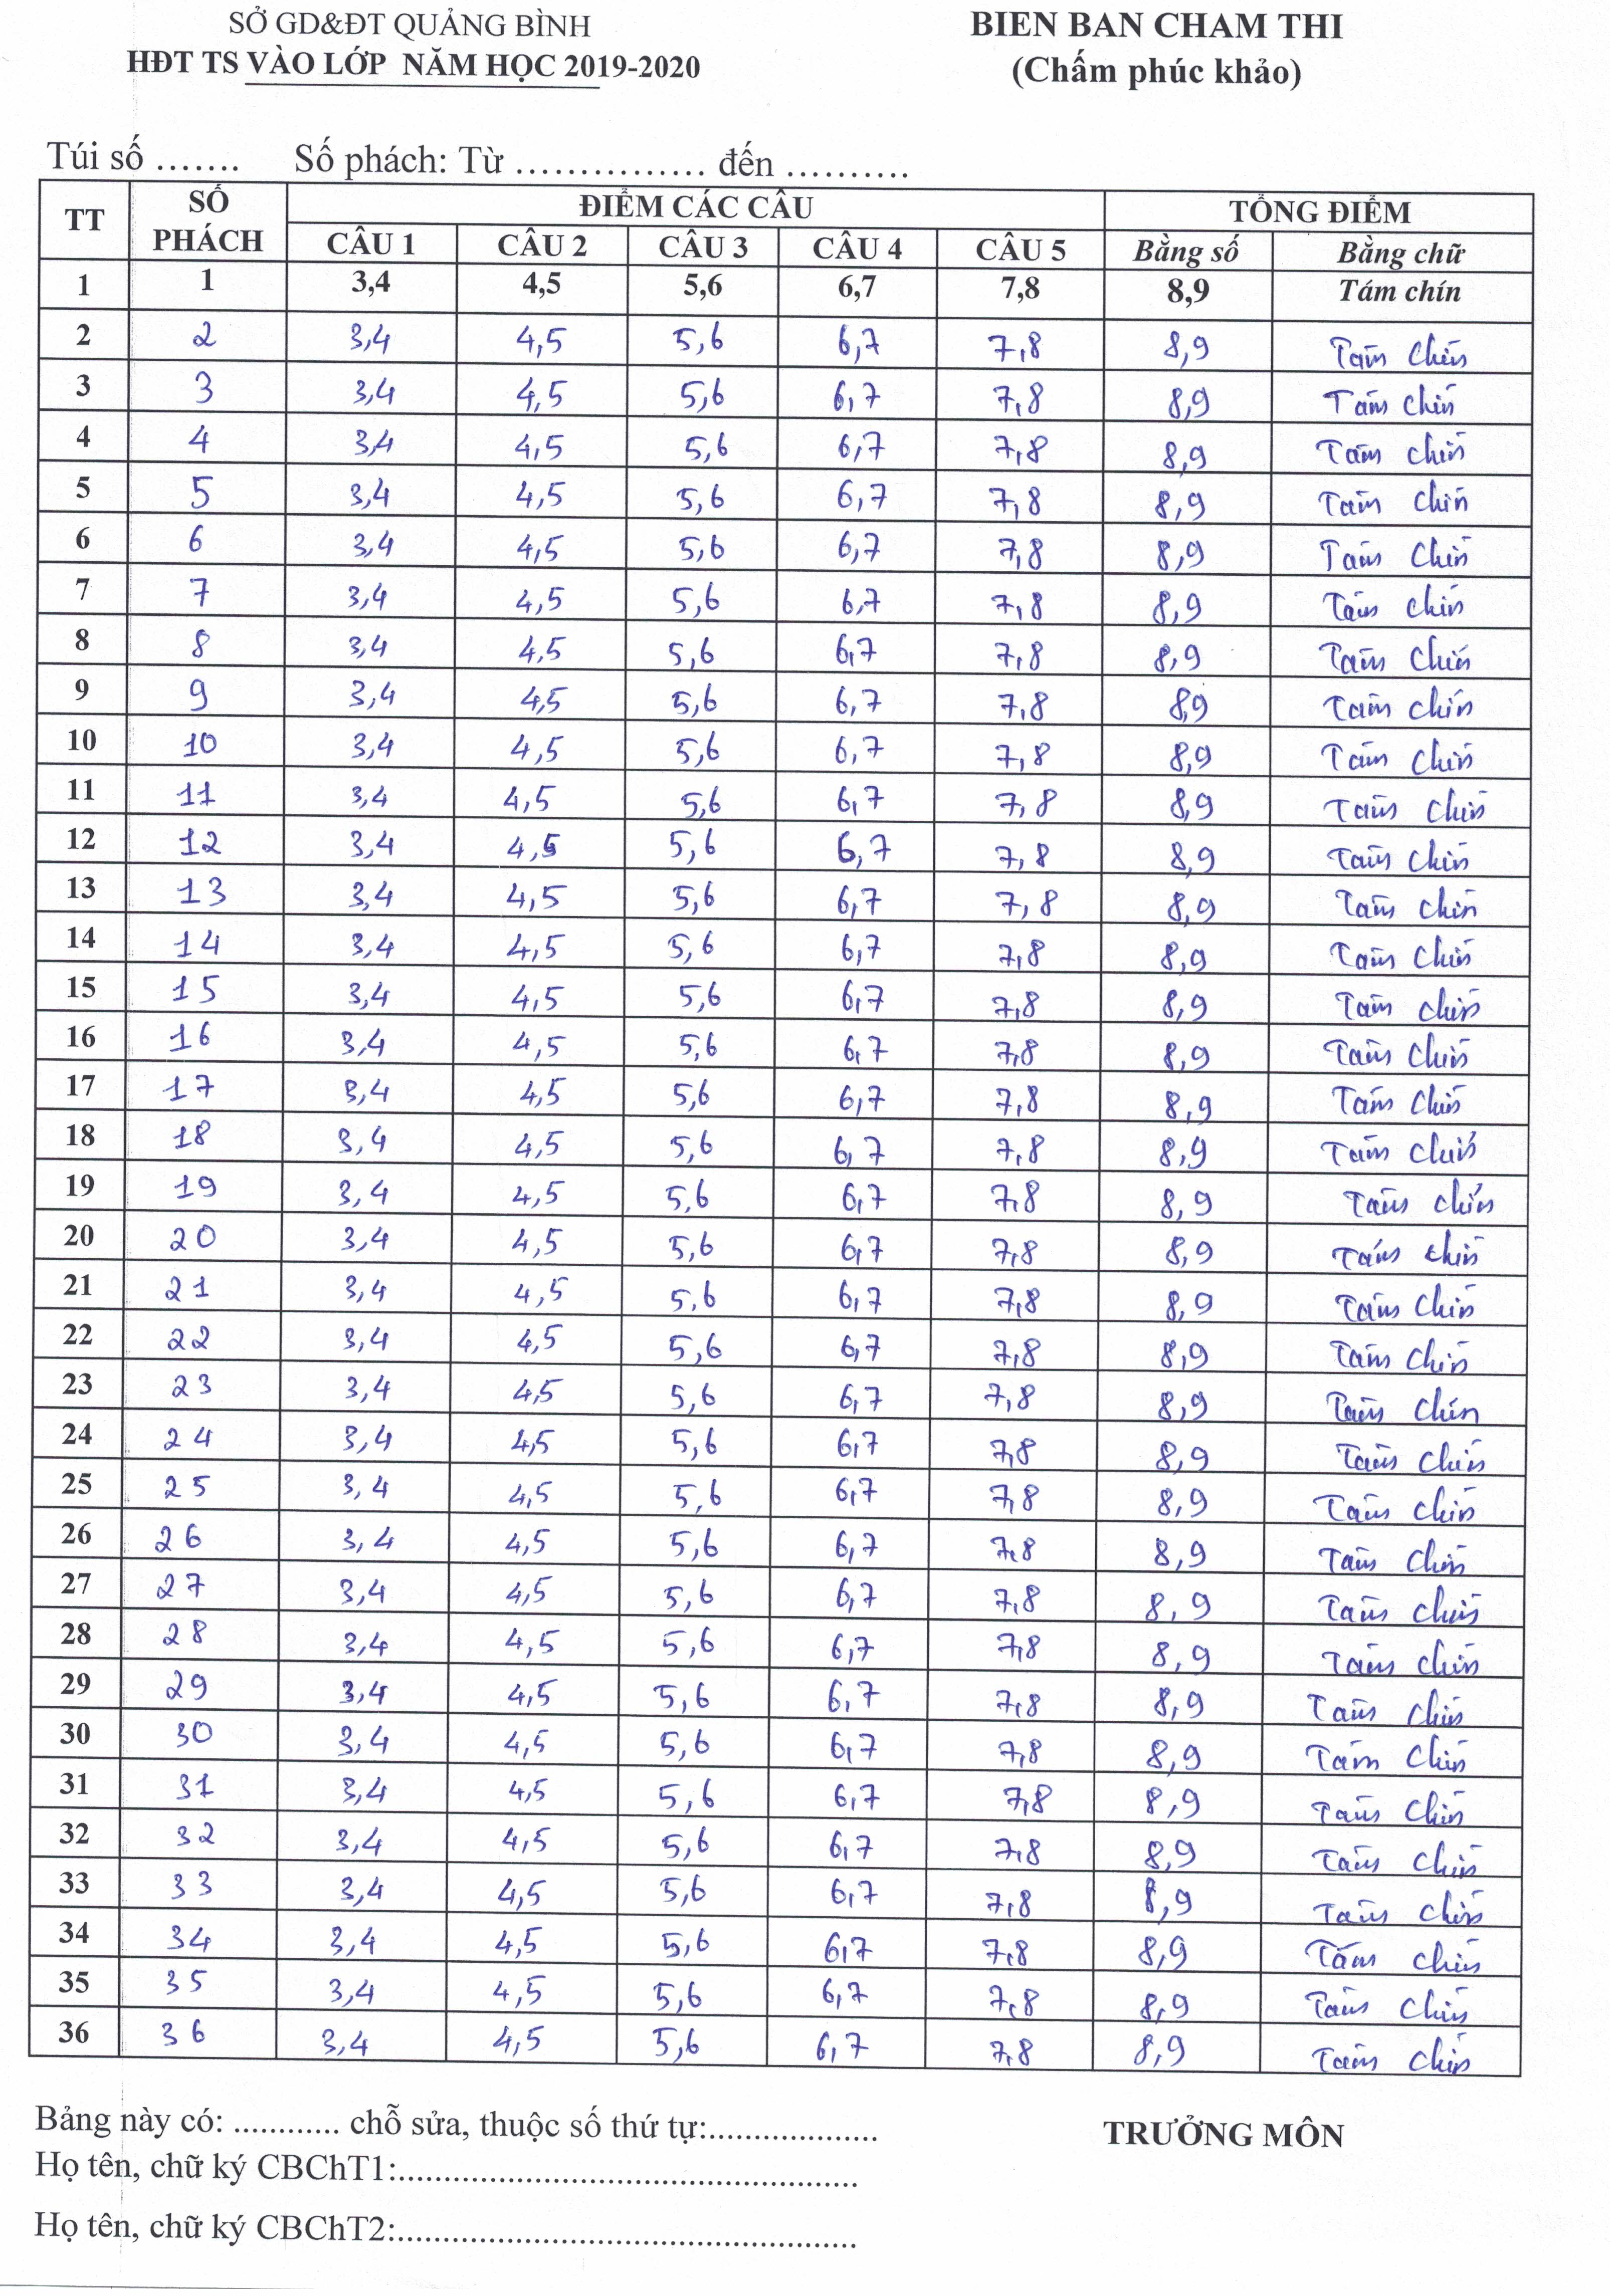 SỞ GD&ĐT QUẢNG BÌNH
HĐT TS VÀO LỚP NĂM HỌC 2019-2020
BIEN BAN CHAM THI
(Chấm phúc khảo)
Túi số ....... Số phách: Từ ............... đến ..........
TT SỐ PHÁCH ĐIỂM CÁC CÂU TỔNG ĐIỂM
CÂU 1 CÂU 2 CÂU 3 CÂU 4 CÂU 5 Bằng số Bằng chữ
1 1 3,4 4,5 5,6 6,7 7,8 8,9 Tám chín
2 2 3,4 4,5 5,6 6,7 7,8 8,9 Tám chín
3 3 3,4 4,5 5,6 6,7 7,8 8,9 Tám chín
4 4 3,4 4,5 5,6 6,7 7,8 8,9 Tám chín
5 5 3,4 4,5 5,6 6,7 7,8 8,9 Tám chín
6 6 3,4 4,5 5,6 6,7 7,8 8,9 Tám chín
7 7 3,4 4,5 5,6 6,7 7,8 8,9 Tám chín
8 8 3,4 4,5 5,6 6,7 7,8 8,9 Tám chín
9 9 3,4 4,5 5,6 6,7 7,8 8,9 Tám chín
10 10 3,4 4,5 5,6 6,7 7,8 8,9 Tám chín
11 11 3,4 4,5 5,6 6,7 7,8 8,9 Tám chín
12 12 3,4 4,5 5,6 6,7 7,8 8,9 Tám chín
13 13 3,4 4,5 5,6 6,7 7,8 8,9 Tám chín
14 14 3,4 4,5 5,6 6,7 7,8 8,9 Tám chín
15 15 3,4 4,5 5,6 6,7 7,8 8,9 Tám chín
16 16 3,4 4,5 5,6 6,7 7,8 8,9 Tám chín
17 17 3,4 4,5 5,6 6,7 7,8 8,9 Tám chín
18 18 3,4 4,5 5,6 6,7 7,8 8,9 Tám chín
19 19 3,4 4,5 5,6 6,7 7,8 8,9 Tám chín
20 20 3,4 4,5 5,6 6,7 7,8 8,9 Tám chín
21 21 3,4 4,5 5,6 6,7 7,8 8,9 Tám chín
22 22 3,4 4,5 5,6 6,7 7,8 8,9 Tám chín
23 23 3,4 4,5 5,6 6,7 7,8 8,9 Tám chín
24 24 3,4 4,5 5,6 6,7 7,8 8,9 Tám chín
25 25 3,4 4,5 5,6 6,7 7,8 8,9 Tám chín
26 26 3,4 4,5 5,6 6,7 7,8 8,9 Tám chín
27 27 3,4 4,5 5,6 6,7 7,8 8,9 Tám chín
28 28 3,4 4,5 5,6 6,7 7,8 8,9 Tám chín
29 29 3,4 4,5 5,6 6,7 7,8 8,9 Tám chín
30 30 3,4 4,5 5,6 6,7 7,8 8,9 Tám chín
31 31 3,4 4,5 5,6 6,7 7,8 8,9 Tám chín
32 32 3,4 4,5 5,6 6,7 7,8 8,9 Tám chín
33 33 3,4 4,5 5,6 6,7 7,8 8,9 Tám chín
34 34 3,4 4,5 5,6 6,7 7,8 8,9 Tám chín
35 35 3,4 4,5 5,6 6,7 7,8 8,9 Tám chín
36 36 3,4 4,5 5,6 6,7 7,8 8,9 Tám chín
Bảng này có: ............ chỗ sửa, thuộc số thứ tự:...................
TRƯỞNG MÔN
Họ tên, chữ ký CBChT1:....................................................
Họ tên, chữ ký CBChT2:....................................................